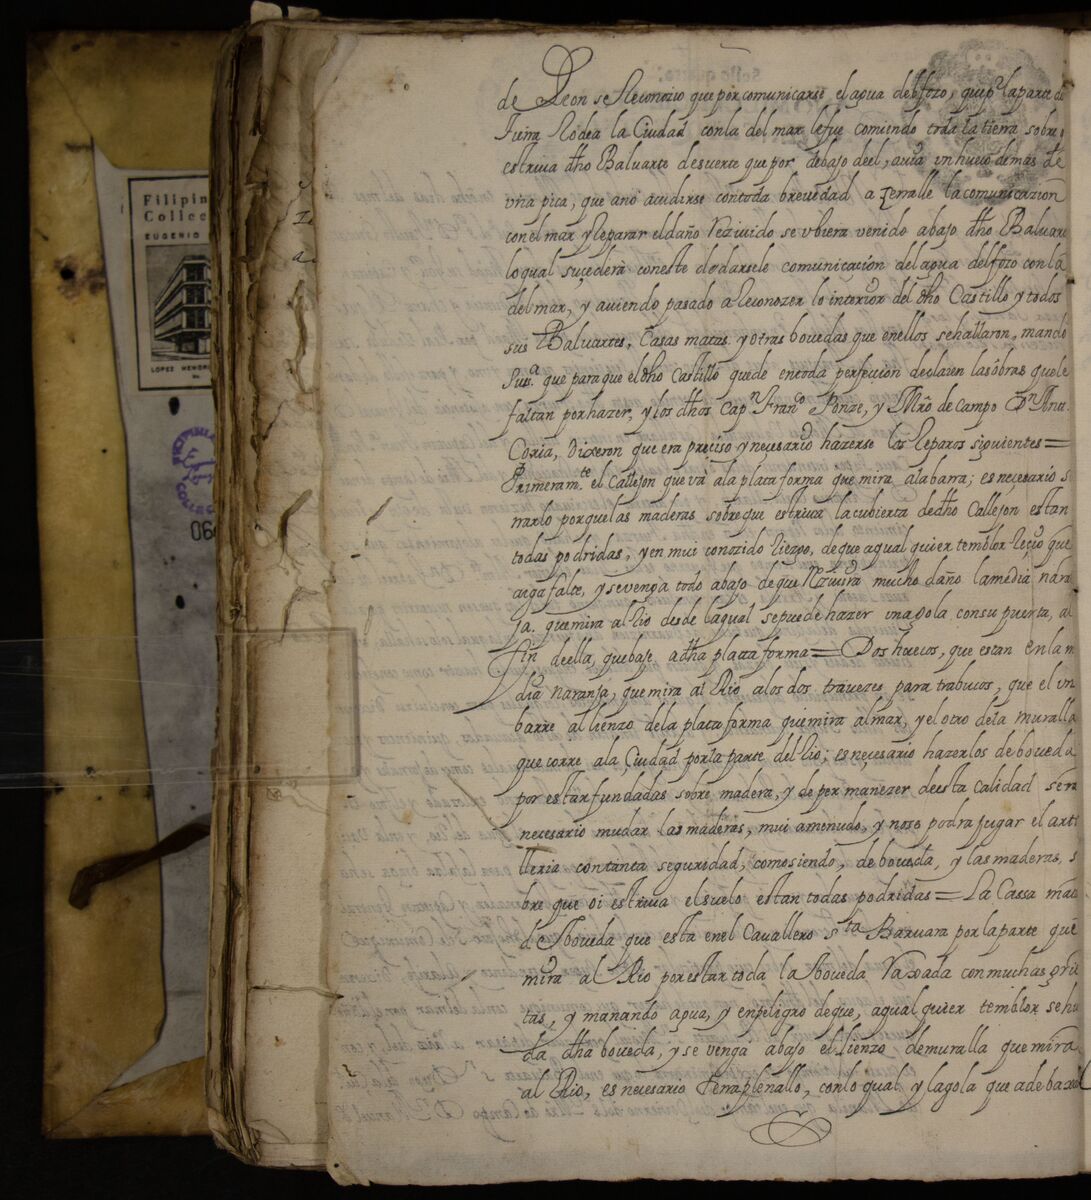 Filipin
Collec
EUGENIO
LOPEZ MEMOR
de Leon se Reconozio que por comunicarse el agua del fozo, que pr. la parte de
tierra Rodea la Ciudad con la del mar le fue comiendo toda la tierra sobre
estriua dho Baluarte de suerte que por debajo deel, auia vn hueco de mas de
vna pica, que a no acudirse con toda breuedad a zerralle la comunicazion
con el mar y Reparar el daño Rezeuido se vbiera venido abajo dho Baluar
lo qual sucederà con este de darsele comunicacion del agua del fozo con la
del mar, y auiendo pasado a Reconozer lo interior del dho Castillo y todos
sus Baluartes, Casas matas y otras bouedas que en ellos se hallaron, mando
que para que el dho Castillo quede en toda perfeccion declaren las obras que le
faltan por hazer, y los dhos Capn. Franco. Ponze, y Mro de campo Dn. Anto.
Coria, Dixeron que era preciso y necesario hazerse los Reparos siguientes =
Primeramte. el Callejon que và a la plataforma que mira a la barra; es necesario
rrarlo porque las maderas sobre que estriua la cubierta de dho Callejon estan
todas podridas, y en mui conozido Riezgo, de que a qualquier temblor Recio que
aiga falte, y se venga todo abajo de que Reziuira mucho daño la media nara
ja. que mira al Rio desde la qual se puede hazer una gola con su puerta, al
fin de ella, que baje a dha plataforma = Dos huecos, que estan en la m
dia naranja, que mira al Rio a los dos trauezes para trabucos, que el vn
barre al lienzo de la plataforma que mira al mar, y el otro de la muralla
que corre a la Ciudad por la parte del Rio; es necesario hazerlos de boueda
por estar fundadas sobre madera, y de permanezer de esta calidad sera
necesario mudar las maderas, mui amenudo, y no se podra jugar el arti
lleria con tanta seguridad, como siendo, de boueda, y las maderas, s
bre que oi estriua el suelo estan todas podridas = La Cassa mata
de Boueda que esta en el Cauallero Sta Baruara por la parte que
mira al Rio por estar toda la Boueda Raxada con muchas grie
tas, y manando agua, y en peligro de que, a qualquier temblor se hu
da dha boueda, y se venga abajo el lienzo de muralla que mira
al Rio, es necesario Terraplenallo, con lo qual y la gola que a de baxar